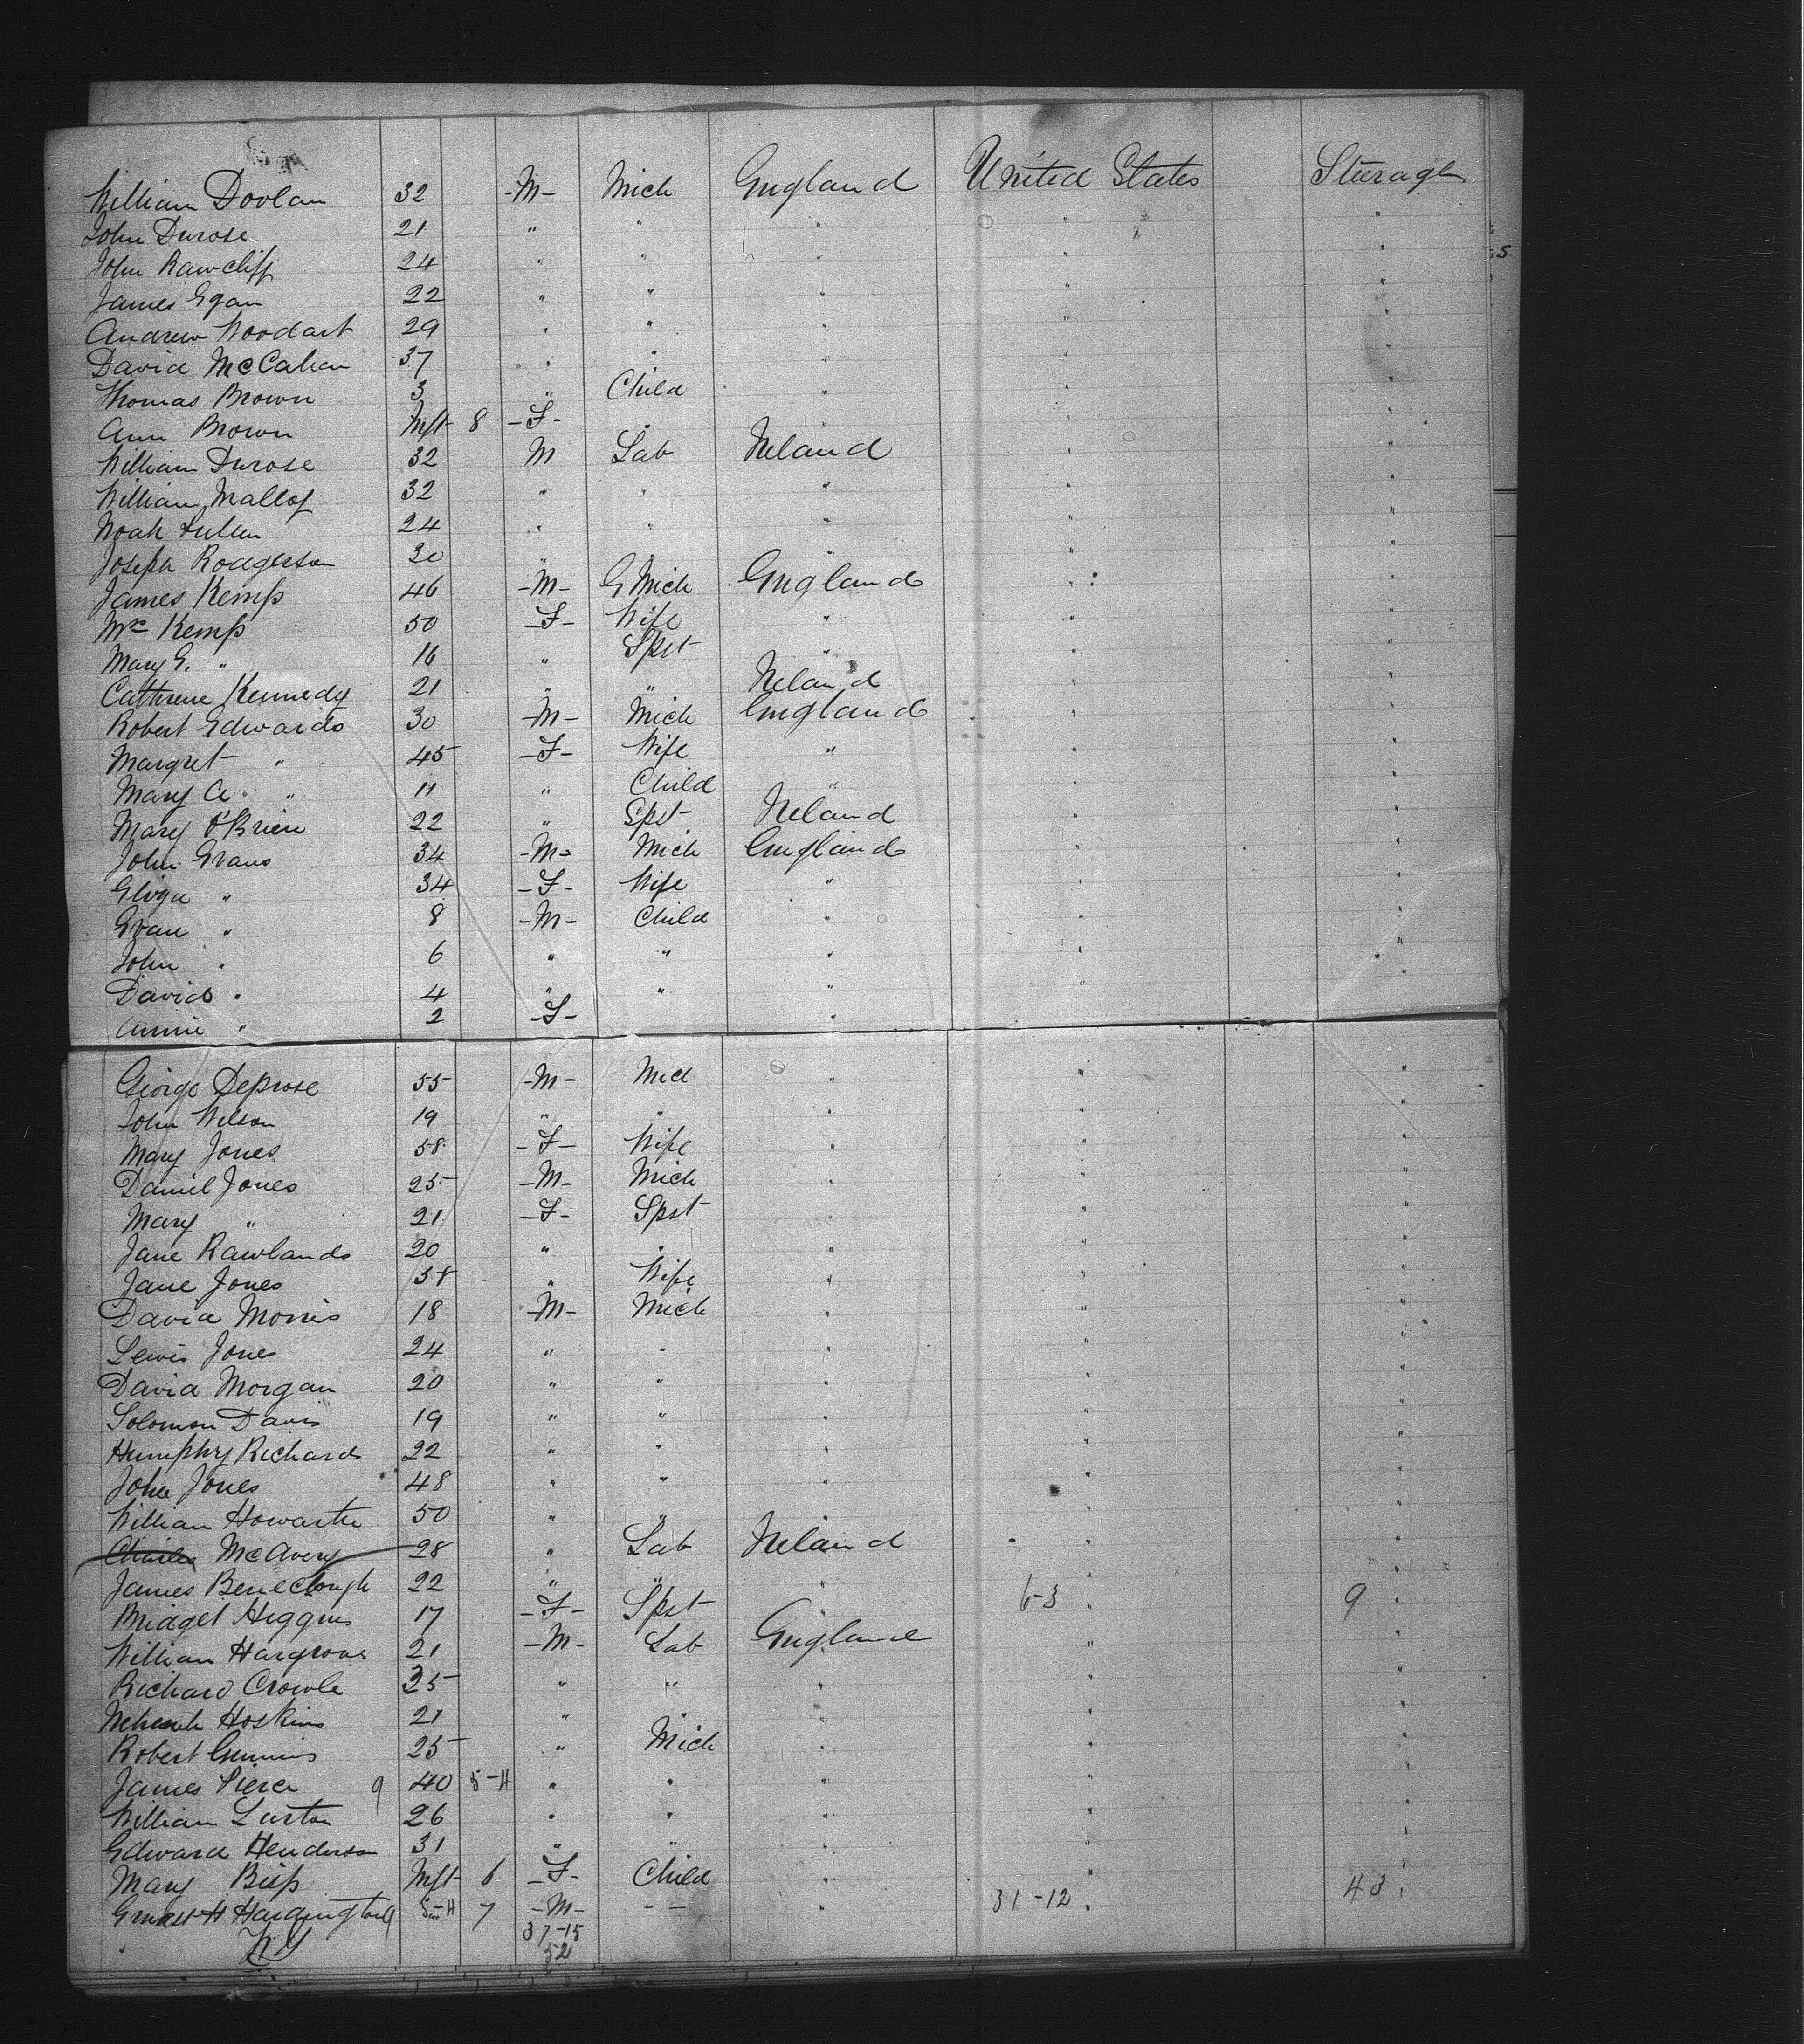 William Doolan 32 -M- Mich England United States Steerage
John Durose 21 " " " " "
John Rawcliff 24 " " " " "
James Egan 22 " " " " "
Andrew Woodart 29 " " " " "
David McCahan 37 " " " " "
Thomas Brown 3 " Child " " "
Ann Brown Inft 8 -F- " " " "
William Durose 32 M Lab Ireland " "
William Malloy 32 " " " " "
Noah 24 " " " " "
Joseph Rodgerson 30 " " " " "
James Kemp 46 -M- G Mich England " "
Mrs Kemp 50 -F- Wife " " "
Mary E. " 16 " Spst " " "
Cathrene Kennedy 21 " " Ireland " "
Robert Edwards 30 -M- Mich England " "
Margret " 45 -F- Wife " " "
Mary A. " 11 " Child " " "
Mary O'Brien 22 " Spst Ireland " "
John Evans 34 -M- Mich England " "
Eliza " 34 -F- Wife " " "
Evan " 8 -M- Child " " "
John " 6 " " " " "
David " 4 " " " " "
Annie " 2 -F- "
George Deprose 55 -M- Mich " " "
John Wilson 19 " " " " "
Mary Jones 58 -F- Wife " " "
Daniel Jones 25 -M- Mich " " "
Mary " 21 -F- Spst " " "
Jane Rawlands 20 " " " " "
Jane Jones 38 " Wife " " "
David Morris 18 -M- Mich " " "
Lewis Jones 24 " " " " "
David Morgan 20 " " " " "
Solomon Davis 19 " " " " "
Humphry Richards 22 " " " " "
John Jones 48 " " " " "
William Howarth 50 " " " " "
Charles McAvery 28 " Lab Ireland " "
James 22 " " " " "
Bridget Higgins 17 -F- Spst " 6-3 " 9 "
William Hargrove 21 -M- Lab England " "
Richard Crowle 25 " " " " "
Hoskins 21 " " " " "
Robert 25 " Mich " " "
James Pierce 9 40 5-H " " " " "
William Luxton 26 " " " " "
Edward Henderson 31 " " " " "
Mary Bisp Inft 6 -F- Child " " "
Ernest H Hardington 9 5-H 7 -M- - - " 31-12 " 43 "
37-15
52